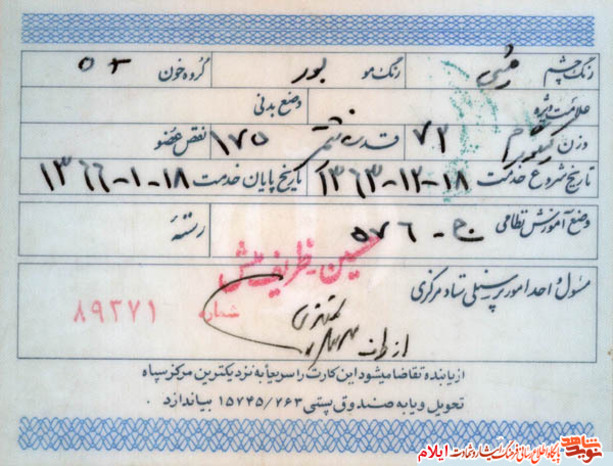 رنگ چشم میشی رنگ مو بور گروه خون O+
علامت ویژه وضع بدنی
وزن ۷۲ کیلوگرم قد ۱۷۵ نقص عضو
تاریخ شروع خدمت ۱۳۶۳-۱۲-۱۸ تاریخ پایان خدمت ۱۳۶۶-۱-۱۸
وضع آموزش نظامی ج - ۵۷۶ رسته
حسین ظریف منش
مسئول واحد امور پرسنلی ستاد مرکزی
شماره ۸۹۲۷۱
از طرف
از یابنده تقاضا میشود این کارت را سریعاً به نزدیکترین مرکز سپاه
تحویل و یا به صندوق پستی ۱۵۷۴۵/۲۶۳ بیاندازد.
نوید شاهد پایگاه اطلاع رسانی فرهنگ ایثار و شهادت ایلام